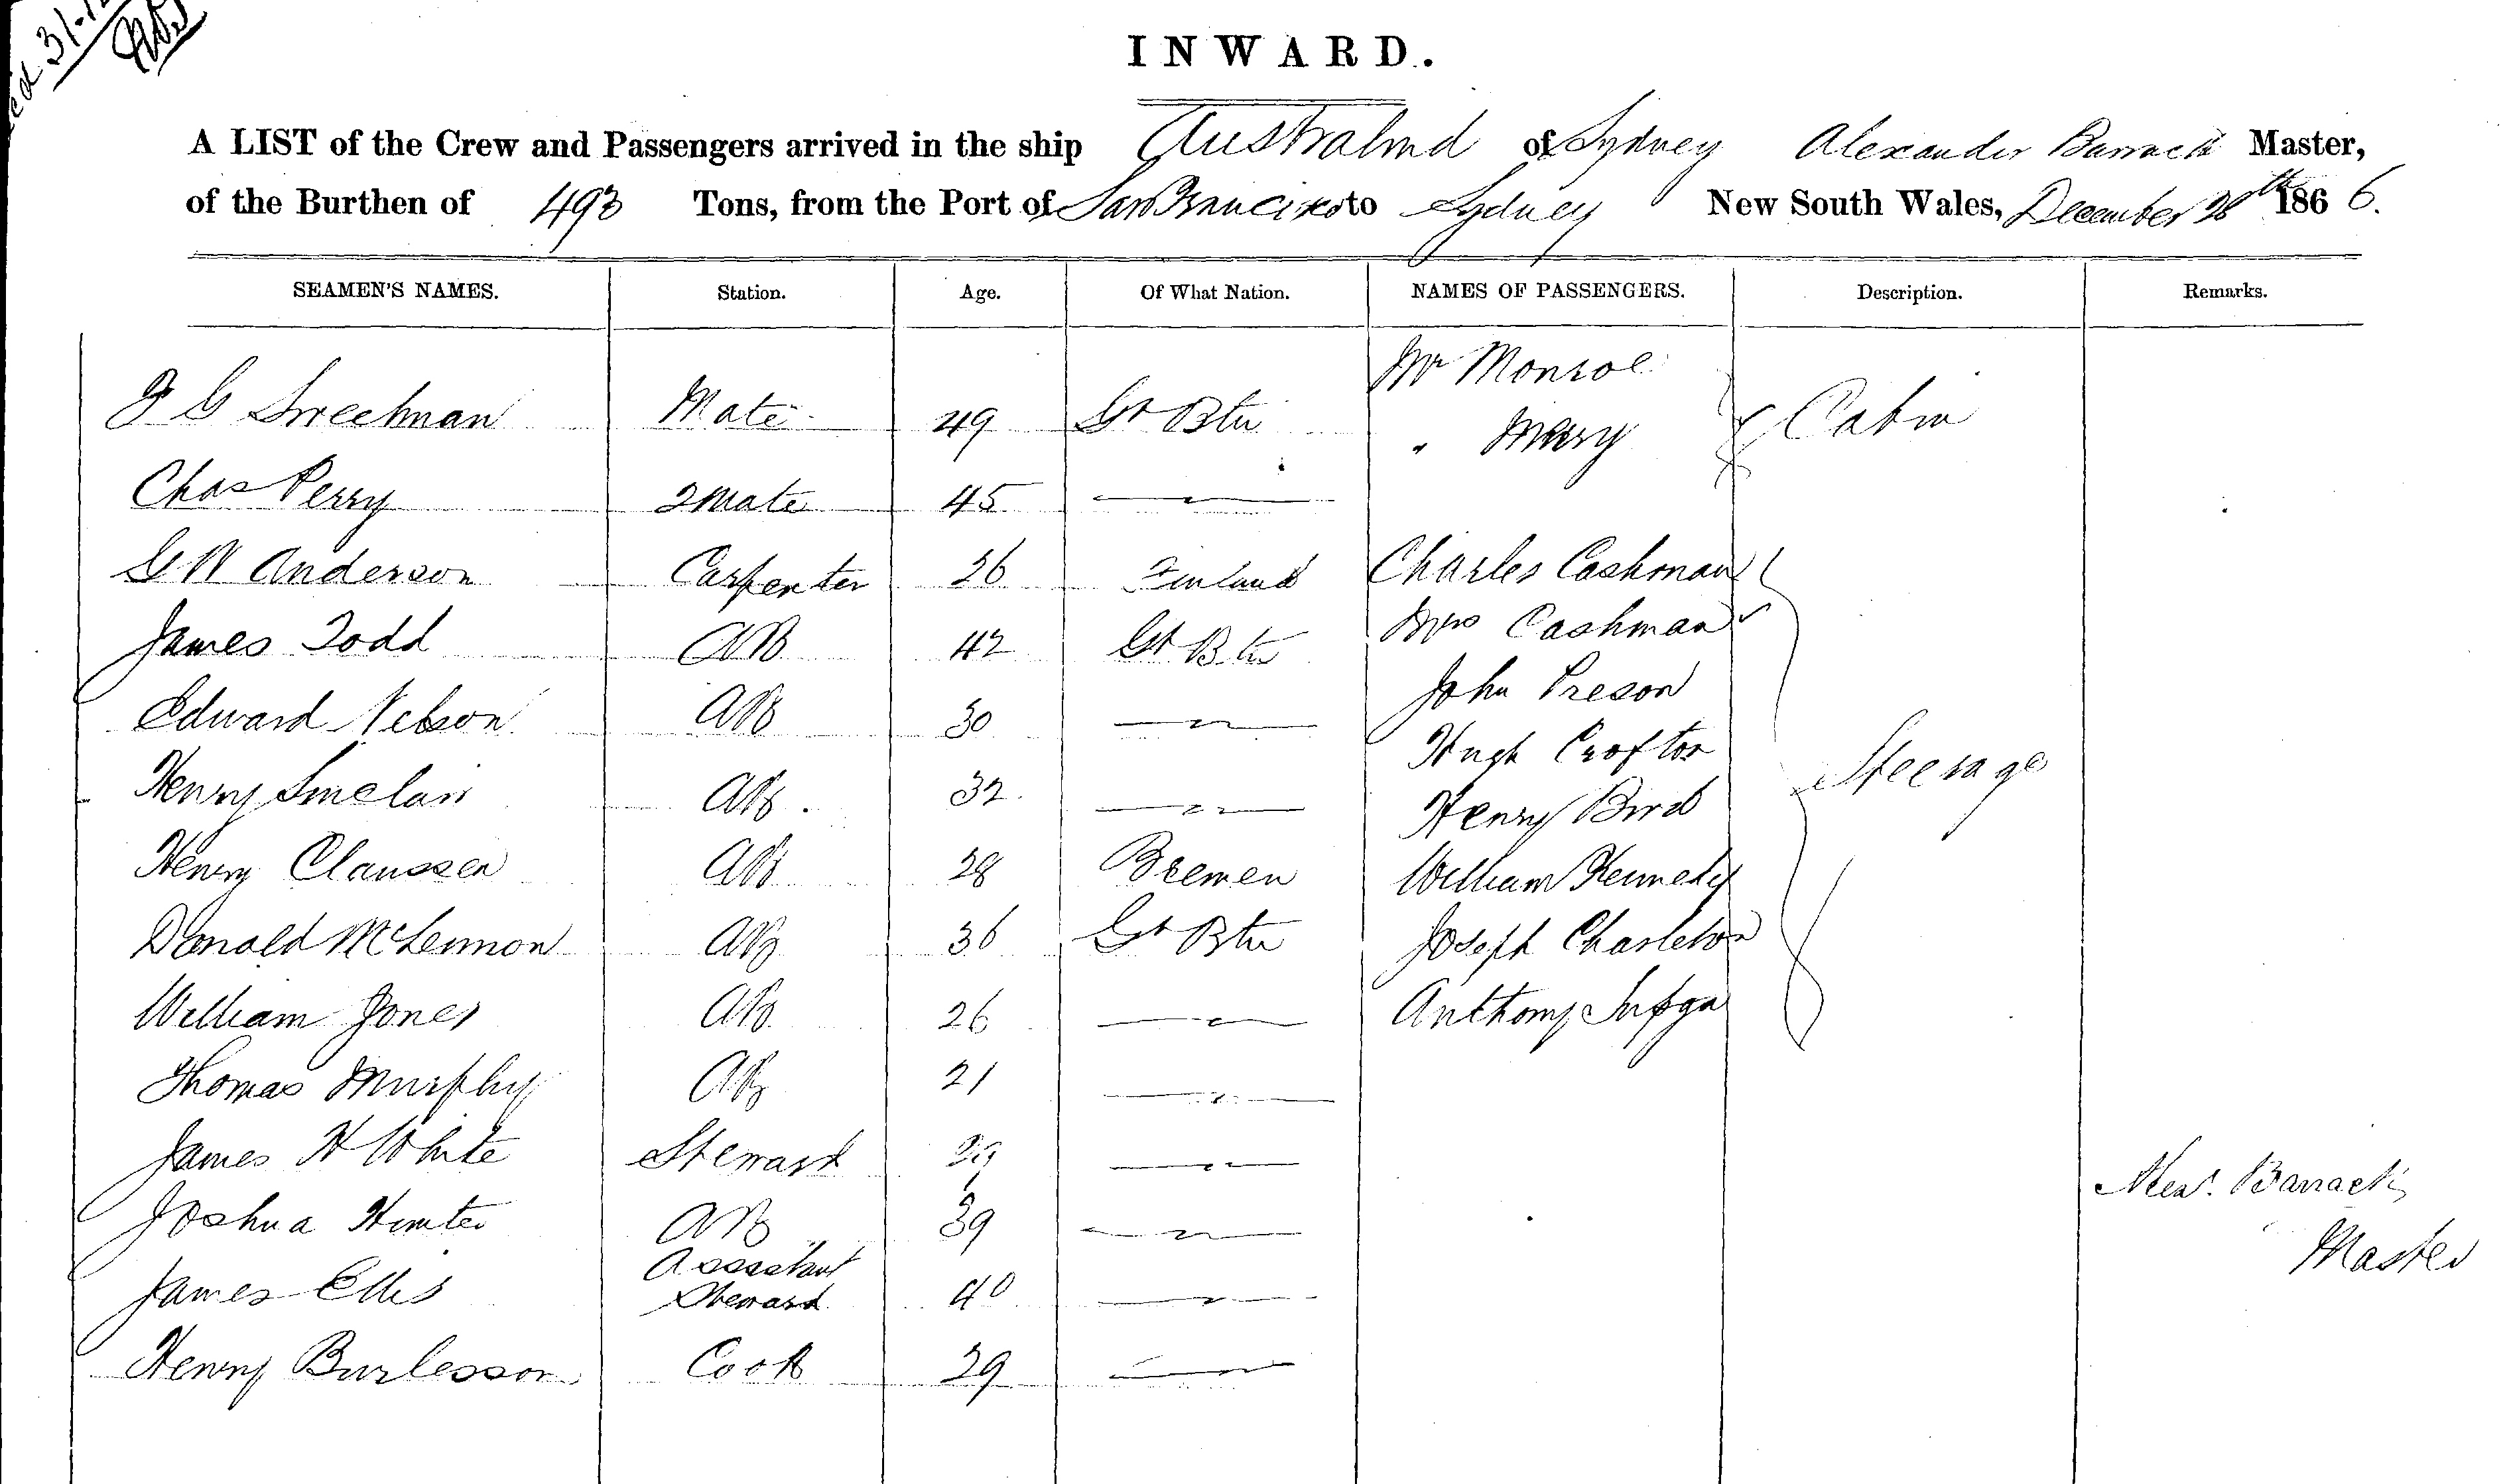 31-12
INWARD.
A LIST of the Crew and Passengers arrived in the ship Australind of Sydney Alexander Barrack Master,
of the Burthen of 493 Tons, from the Port of San Francisko to Sydney New South Wales, December 28th 1866.
SEAMEN'S NAMES. Station. Age. Of What Nation. NAMES OF PASSENGERS. Description. Remarks.
Mr Monroe
Sweetman Mate 49 Gt Btn " Mary Cabin
Chas Perry 2 Mate 45 — " —
G W Anderson Carpenter 26 Finland Charles Cashman
James Todd AB 42 Gt Btn Mrs Cashman
Edward Nelson AB 30 — " — John Preson
Hugh Crofton
Steerage
Henry Sinclair AB. 32. — " — Henry Bird
Henry Claussen AB 28 Bremen William Kennedy
Donald McLennon AB 36 Gt Btn Joseph Charleton
William Jones AB 26 — " — Anthony
Thomas Murphy AB 21 — " —
James H White Steward — " — Alexr. Barrack
Joshua Hunter AB 39 — " —
Master
Assistant
James Ellis Steward 40 — " —
Henry Burlesson Cook 29 — " —